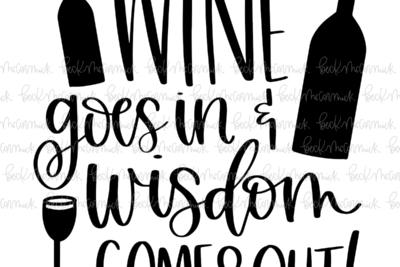 WINE
goes in &
wisdom
COMES OUT!